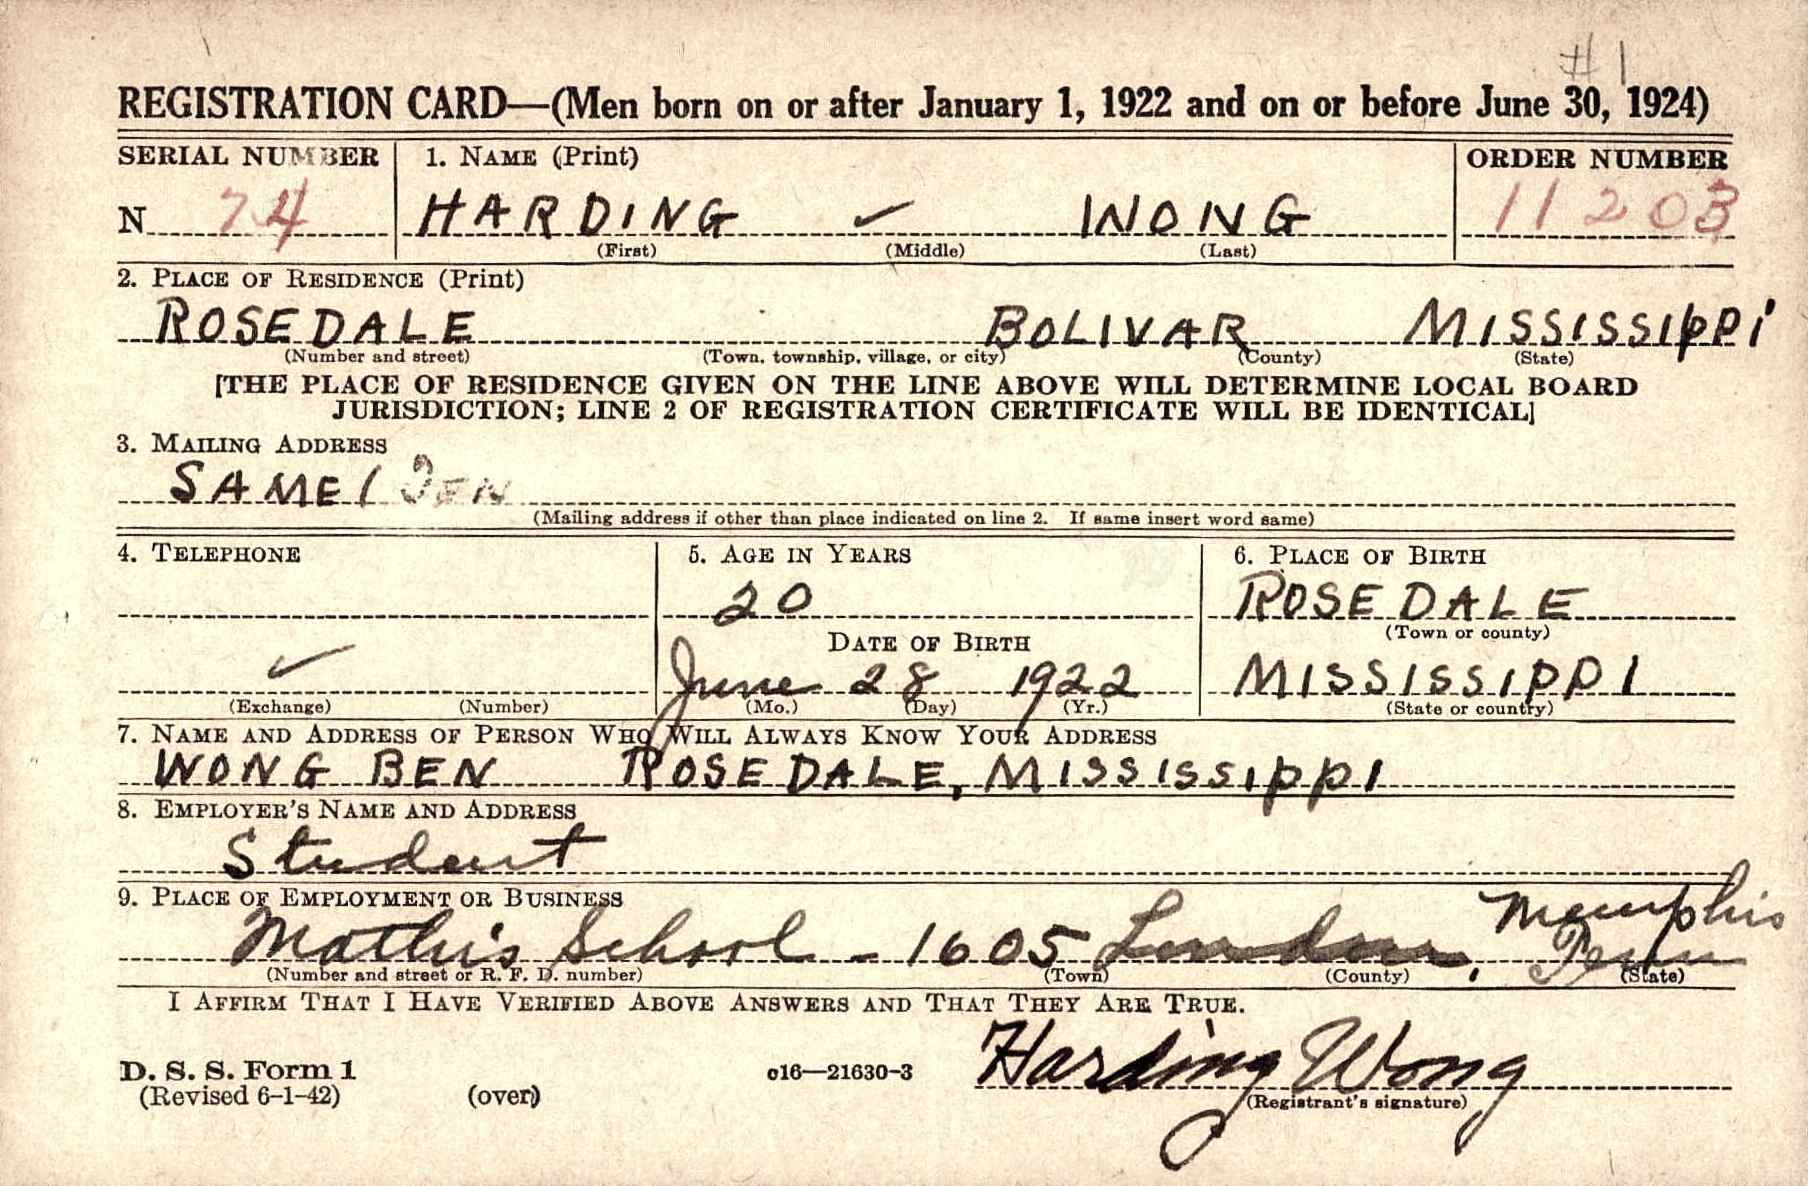 #1
REGISTRATION CARD—(Men born on or after January 1, 1922 and on or before June 30, 1924)
SERIAL NUMBER 1. NAME (Print) ORDER NUMBER
N 74 HARDING WONG 11203
(First) (Middle) (Last)
2. PLACE OF RESIDENCE (Print)
ROSEDALE BOLIVAR MISSISSIPPI
(Number and street) (Town, township, village, or city) (County) (State)
[THE PLACE OF RESIDENCE GIVEN ON THE LINE ABOVE WILL DETERMINE LOCAL BOARD
JURISDICTION; LINE 2 OF REGISTRATION CERTIFICATE WILL BE IDENTICAL]
3. MAILING ADDRESS
SAME
(Mailing address if other than place indicated on line 2. If same insert word same)
4. TELEPHONE 5. AGE IN YEARS 6. PLACE OF BIRTH
20 ROSEDALE
(Town or county)
DATE OF BIRTH
June 28 1922 MISSISSIPPI
(Exchange) (Number) (Mo.) (Day) (Yr.) (State or country)
7. NAME AND ADDRESS OF PERSON WHO WILL ALWAYS KNOW YOUR ADDRESS
WONG BEN ROSEDALE, MISSISSIPPI
8. EMPLOYER'S NAME AND ADDRESS
Student
9. PLACE OF EMPLOYMENT OR BUSINESS
Mathis School - 1605 Linden, Memphis Tenn
(Number and street or R. F. D. number) (Town) (County) (State)
I AFFIRM THAT I HAVE VERIFIED ABOVE ANSWERS AND THAT THEY ARE TRUE.
Harding Wong
D. S. S. Form 1 c16—21630-3
(Revised 6-1-42) (over) (Registrant's signature)